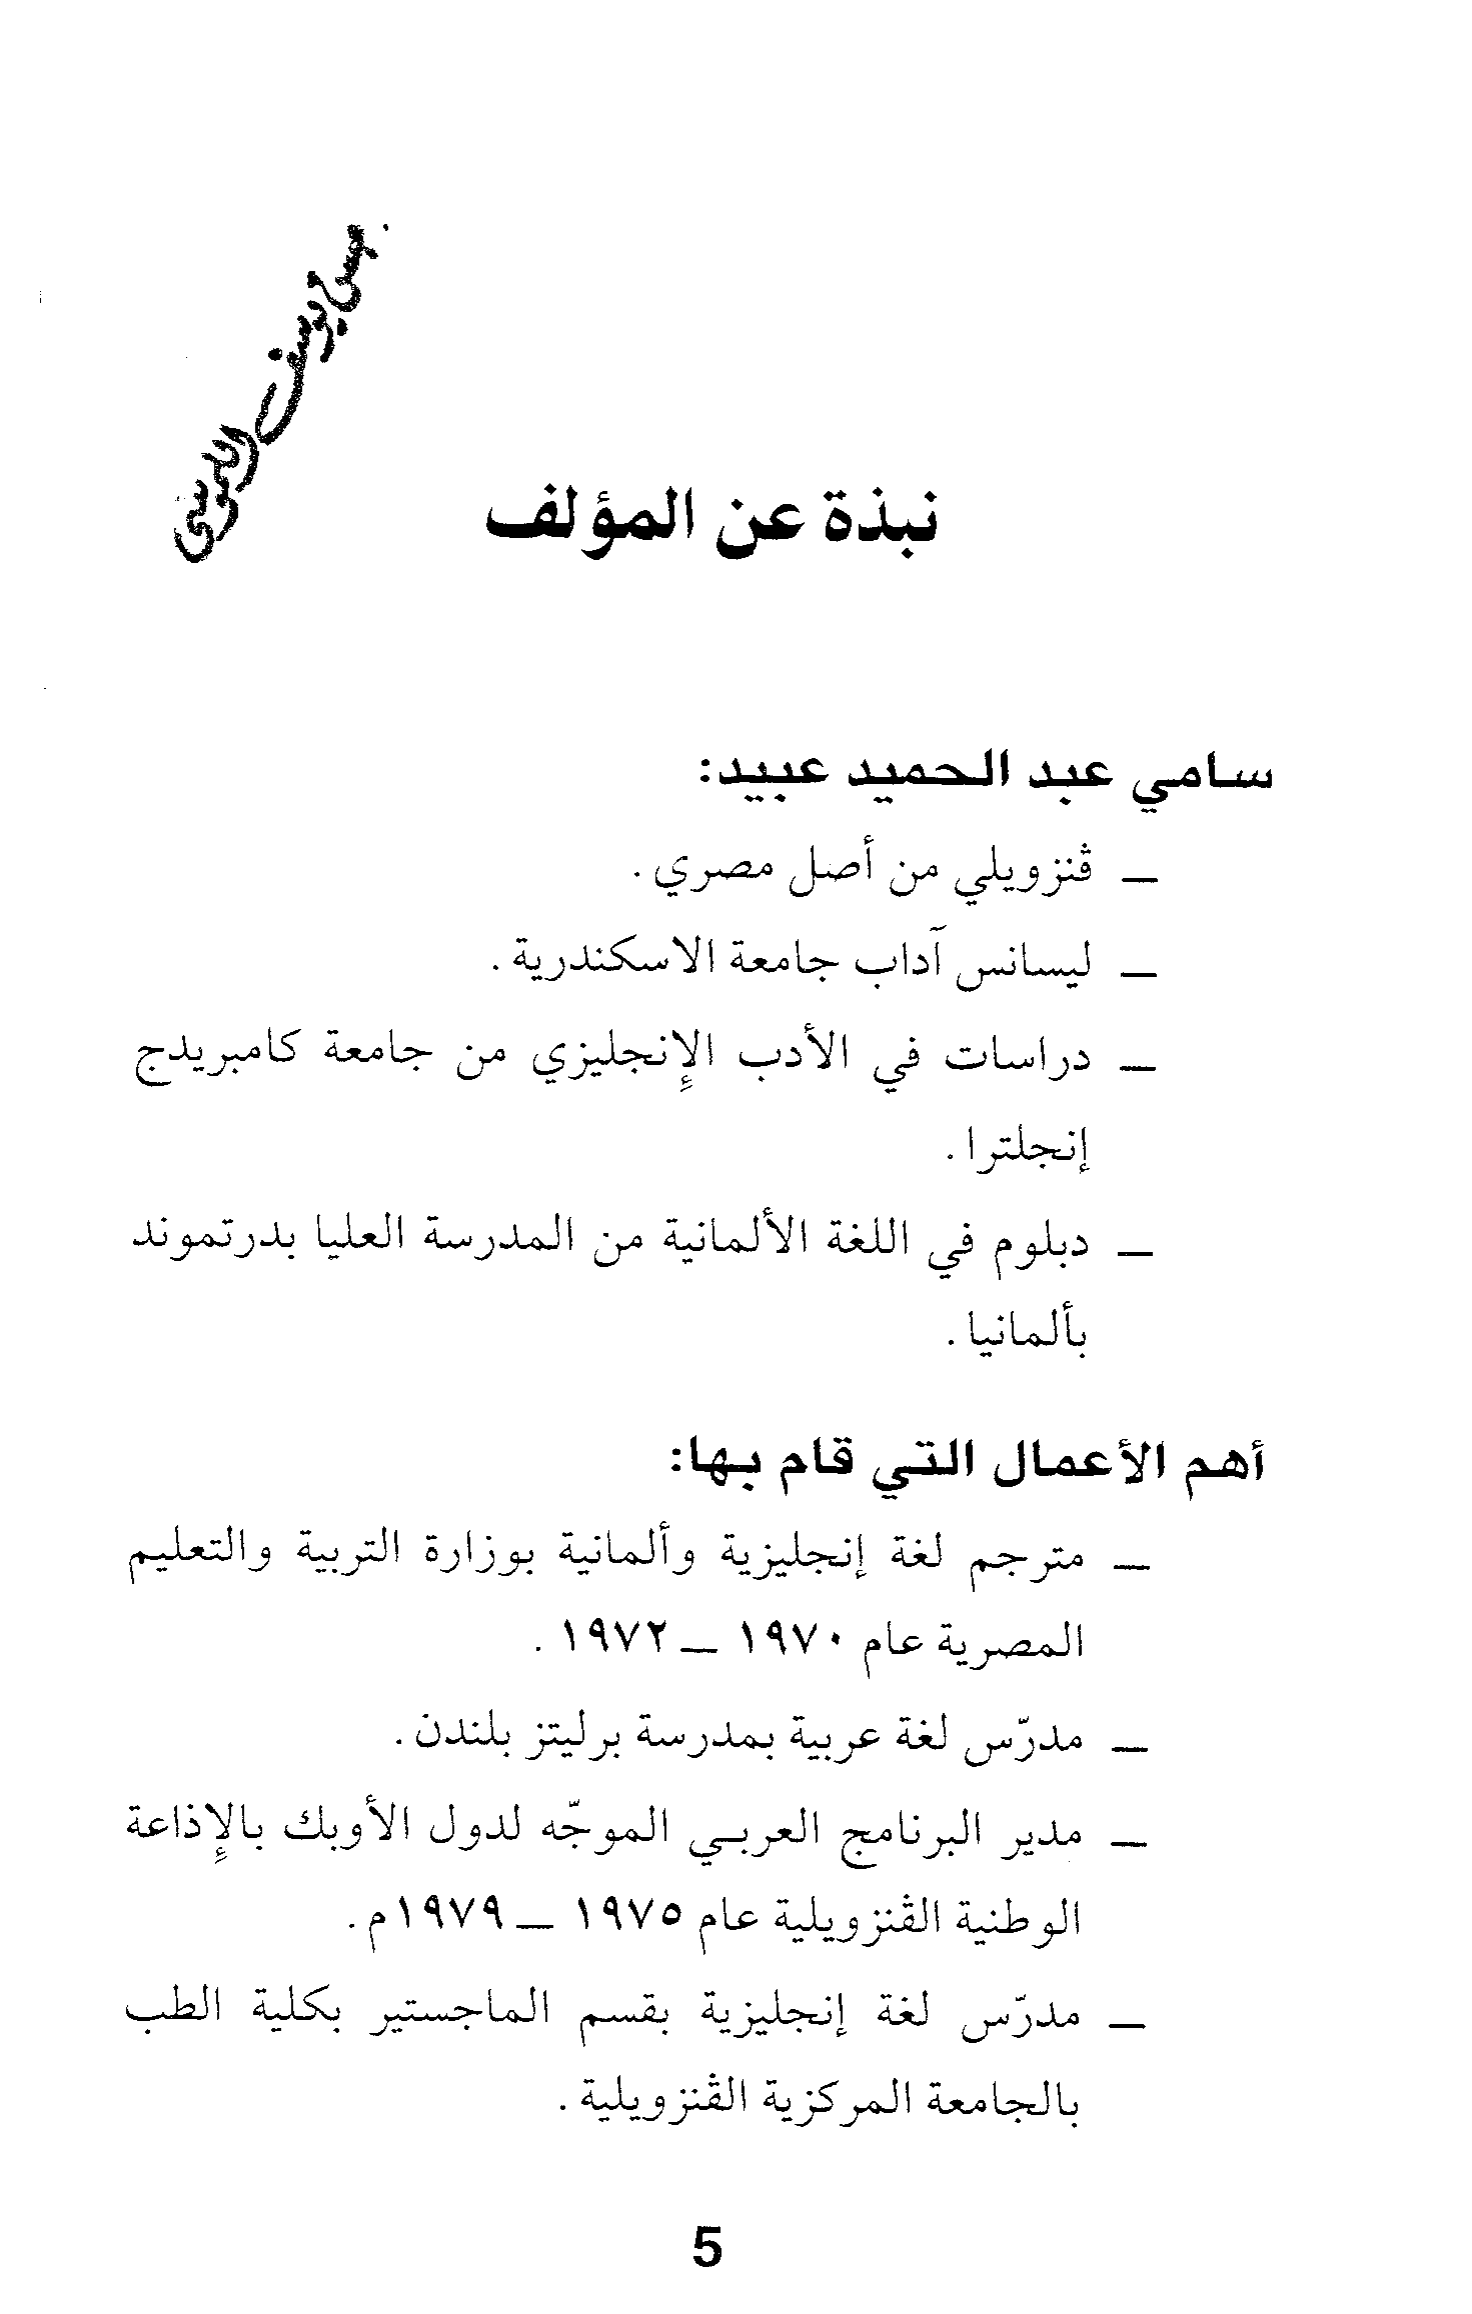 نبذة عن المؤلف
سامي عبد الحميد عبيد:
ـ ڤنزويلي من أصل مصري.
ـ ليسانس آداب جامعة الاسكندرية.
ـ دراسات في الأدب الإنجليزي من جامعة كامبريدج
إنجلترا.
ـ دبلوم في اللغة الألمانية من المدرسة العليا بدرتموند
بألمانيا.
أهم الأعمال التي قام بها:
ـ مترجم لغة إنجليزية وألمانية بوزارة التربية والتعليم
المصرية عام ١٩٧٠ ـ ١٩٧٢.
ـ مدرّس لغة عربية بمدرسة برليتز بلندن.
ـ مدير البرنامج العربي الموجّه لدول الأوبك بالإذاعة
الوطنية الڤنزويلية عام ١٩٧٥ ـ ١٩٧٩م.
ـ مدرّس لغة إنجليزية بقسم الماجستير بكلية الطب
بالجامعة المركزية الڤنزويلية.
5